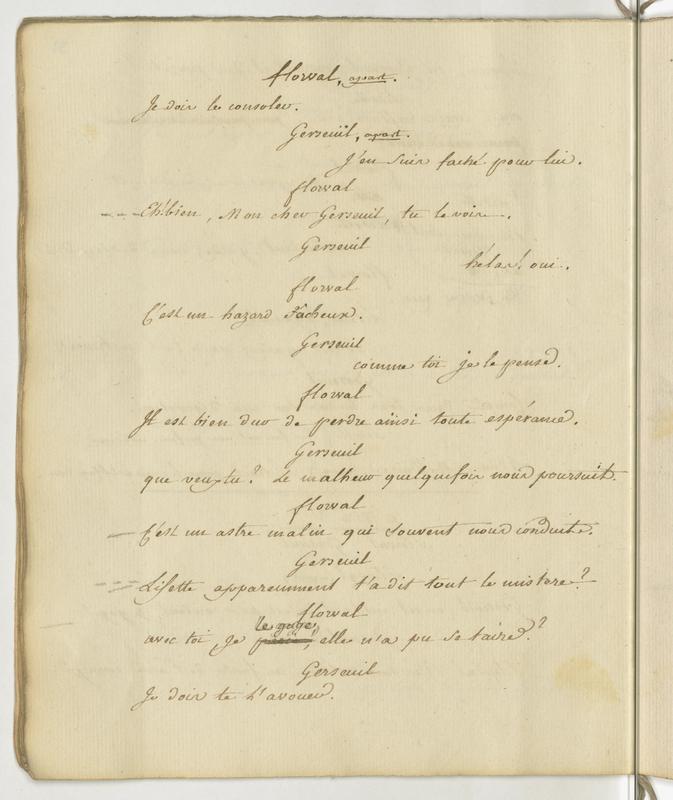 florval, apart.
Je dois le consoler.
Gerseüil, apart.
J'en suis faché pour lui.
florval
Eh! bien, Mon cher Gerseuil, tu le vois.
Gerseuil
hélas! oui.
florval
C'est un hazard facheux.
Gerseuil
comme toi je le pense.
florval
Il est bien dur de perdre aïnsi toute espérance.
Gerseuil
que veux-tu? Le malheur quelquefois nous poursuit.
florval
C'est un astre malin qui souvent nous conduit.
Gerseuil
Lisette apparemment t'a dit tout le mistere?
florval
le gage,
avec toi, je elle n'a pu se taire.?
Gerseuil
Je dois te l'avouer.